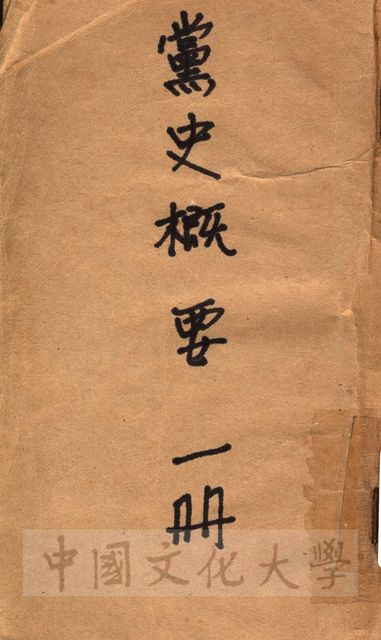 黨史概要一冊
中國文化大學